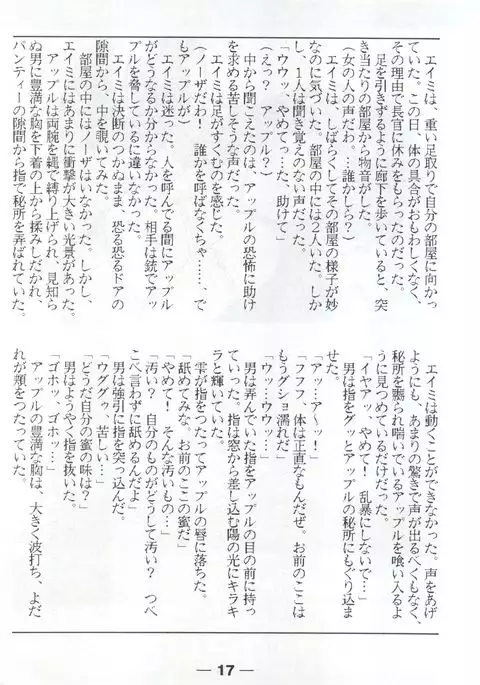 エイミは、重い足取りで自分の部屋に向かっ
ていた。この日、体の具合がおもわしくなく、
その理由で長官に休みをもらったのだった。
足を引きずるように廊下を歩いていると、突
き当たりの部屋から物音がした。
(女の人の声だわ。…誰かしら?)
エイミは、しばらくしてその部屋の様子が妙
なのに気づいた。部屋の中には2人いた。しか
し、1人は聞き覚えのない声だった。
「ウウッ、やめてっ…た、助けて」
(えっ?アップル?)
中から聞こえたのは、アップルの恐怖に助け
を求める苦しそうな声だった。
エイミは足がすくむのを感じた。
(ノーザだわ!誰かを呼ばなくちゃ……、で
もアップルが)
エイミは迷った。人を呼んでる間にアップル
がどうなるか分からなかった。相手は銃でアッ
プルを脅しているに違いなかった。
エイミは決断のつかぬまま、恐る恐るドアの
隙間から、中を覗いてみた。
部屋の中にはノーザはいなかった。しかし、
エイミにはあまりに衝撃が大きい光景があった。
アップルは両腕を縄で縛り上げられ、見知ら
ぬ男に豊満な胸を下着の上から揉みしだかれ、
パンティーの隙間から指で秘所を弄ばれていた。
エイミは動くことができなかった。声をあげ
ようにも、あまりの驚きで声が出るべくもなく、
秘所を嬲られ喘いでいるアップルを喰い入るよ
うに見つめているだけだった。
「イヤアッ、やめて!乱暴にしないで…」
男は指をグッとアップルの秘所にもぐり込ま
せた。
「アッ…ア〜ッ!」
「フフフ、体は正直なもんだぜ。お前のここは
もうグショ濡れだ」
「ウッ…ウウッ…」
男は弄んでいた指をアップルの目の前に持っ
ていった。指は窓から差し込む陽の光にキラキ
ラと輝いていた。
雫が指をつたってアップルの唇に落ちた。
「舐めてみな。お前のここの蜜だ」
「やめて!そんな汚いもの…」
「汚い?自分のものがどうして汚い?つべ
こべ言わずに舐めるんだよ」
男は強引に指を突っ込んだ。
「ウググゥ、苦しい…」
「どうだ自分の蜜の味は?」
男はようやく指を抜いた。
「ゴホッ、ゴホッ…」
アップルの豊満な胸は、大きく波打ち、よだ
れが頬をつたっていた。
— 17 —